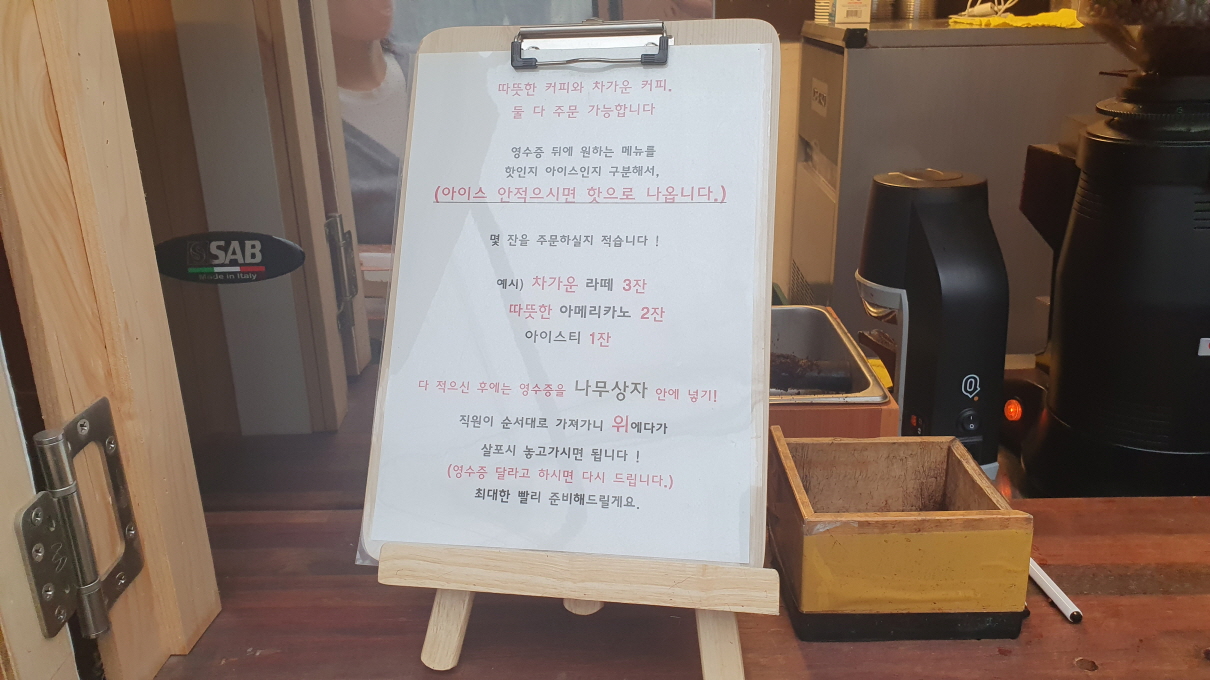 따뜻한 커피와 차가운 커피.
둘 다 주문 가능합니다
영수증 뒤에 원하는 메뉴를
핫인지 아이스인지 구분해서,
(아이스 안적으시면 핫으로 나옵니다.)
몇 잔을 주문하실지 적습니다 !
예시) 차가운 라떼 3잔
따뜻한 아메리카노 2잔
아이스티 1잔
다 적으신 후에는 영수증을 나무상자 안에 넣기!
직원이 순서대로 가져가니 위에다가
살포시 놓고가시면 됩니다 !
(영수증 달라고 하시면 다시 드립니다.)
최대한 빨리 준비해드릴게요.
SAB
Made in Italy